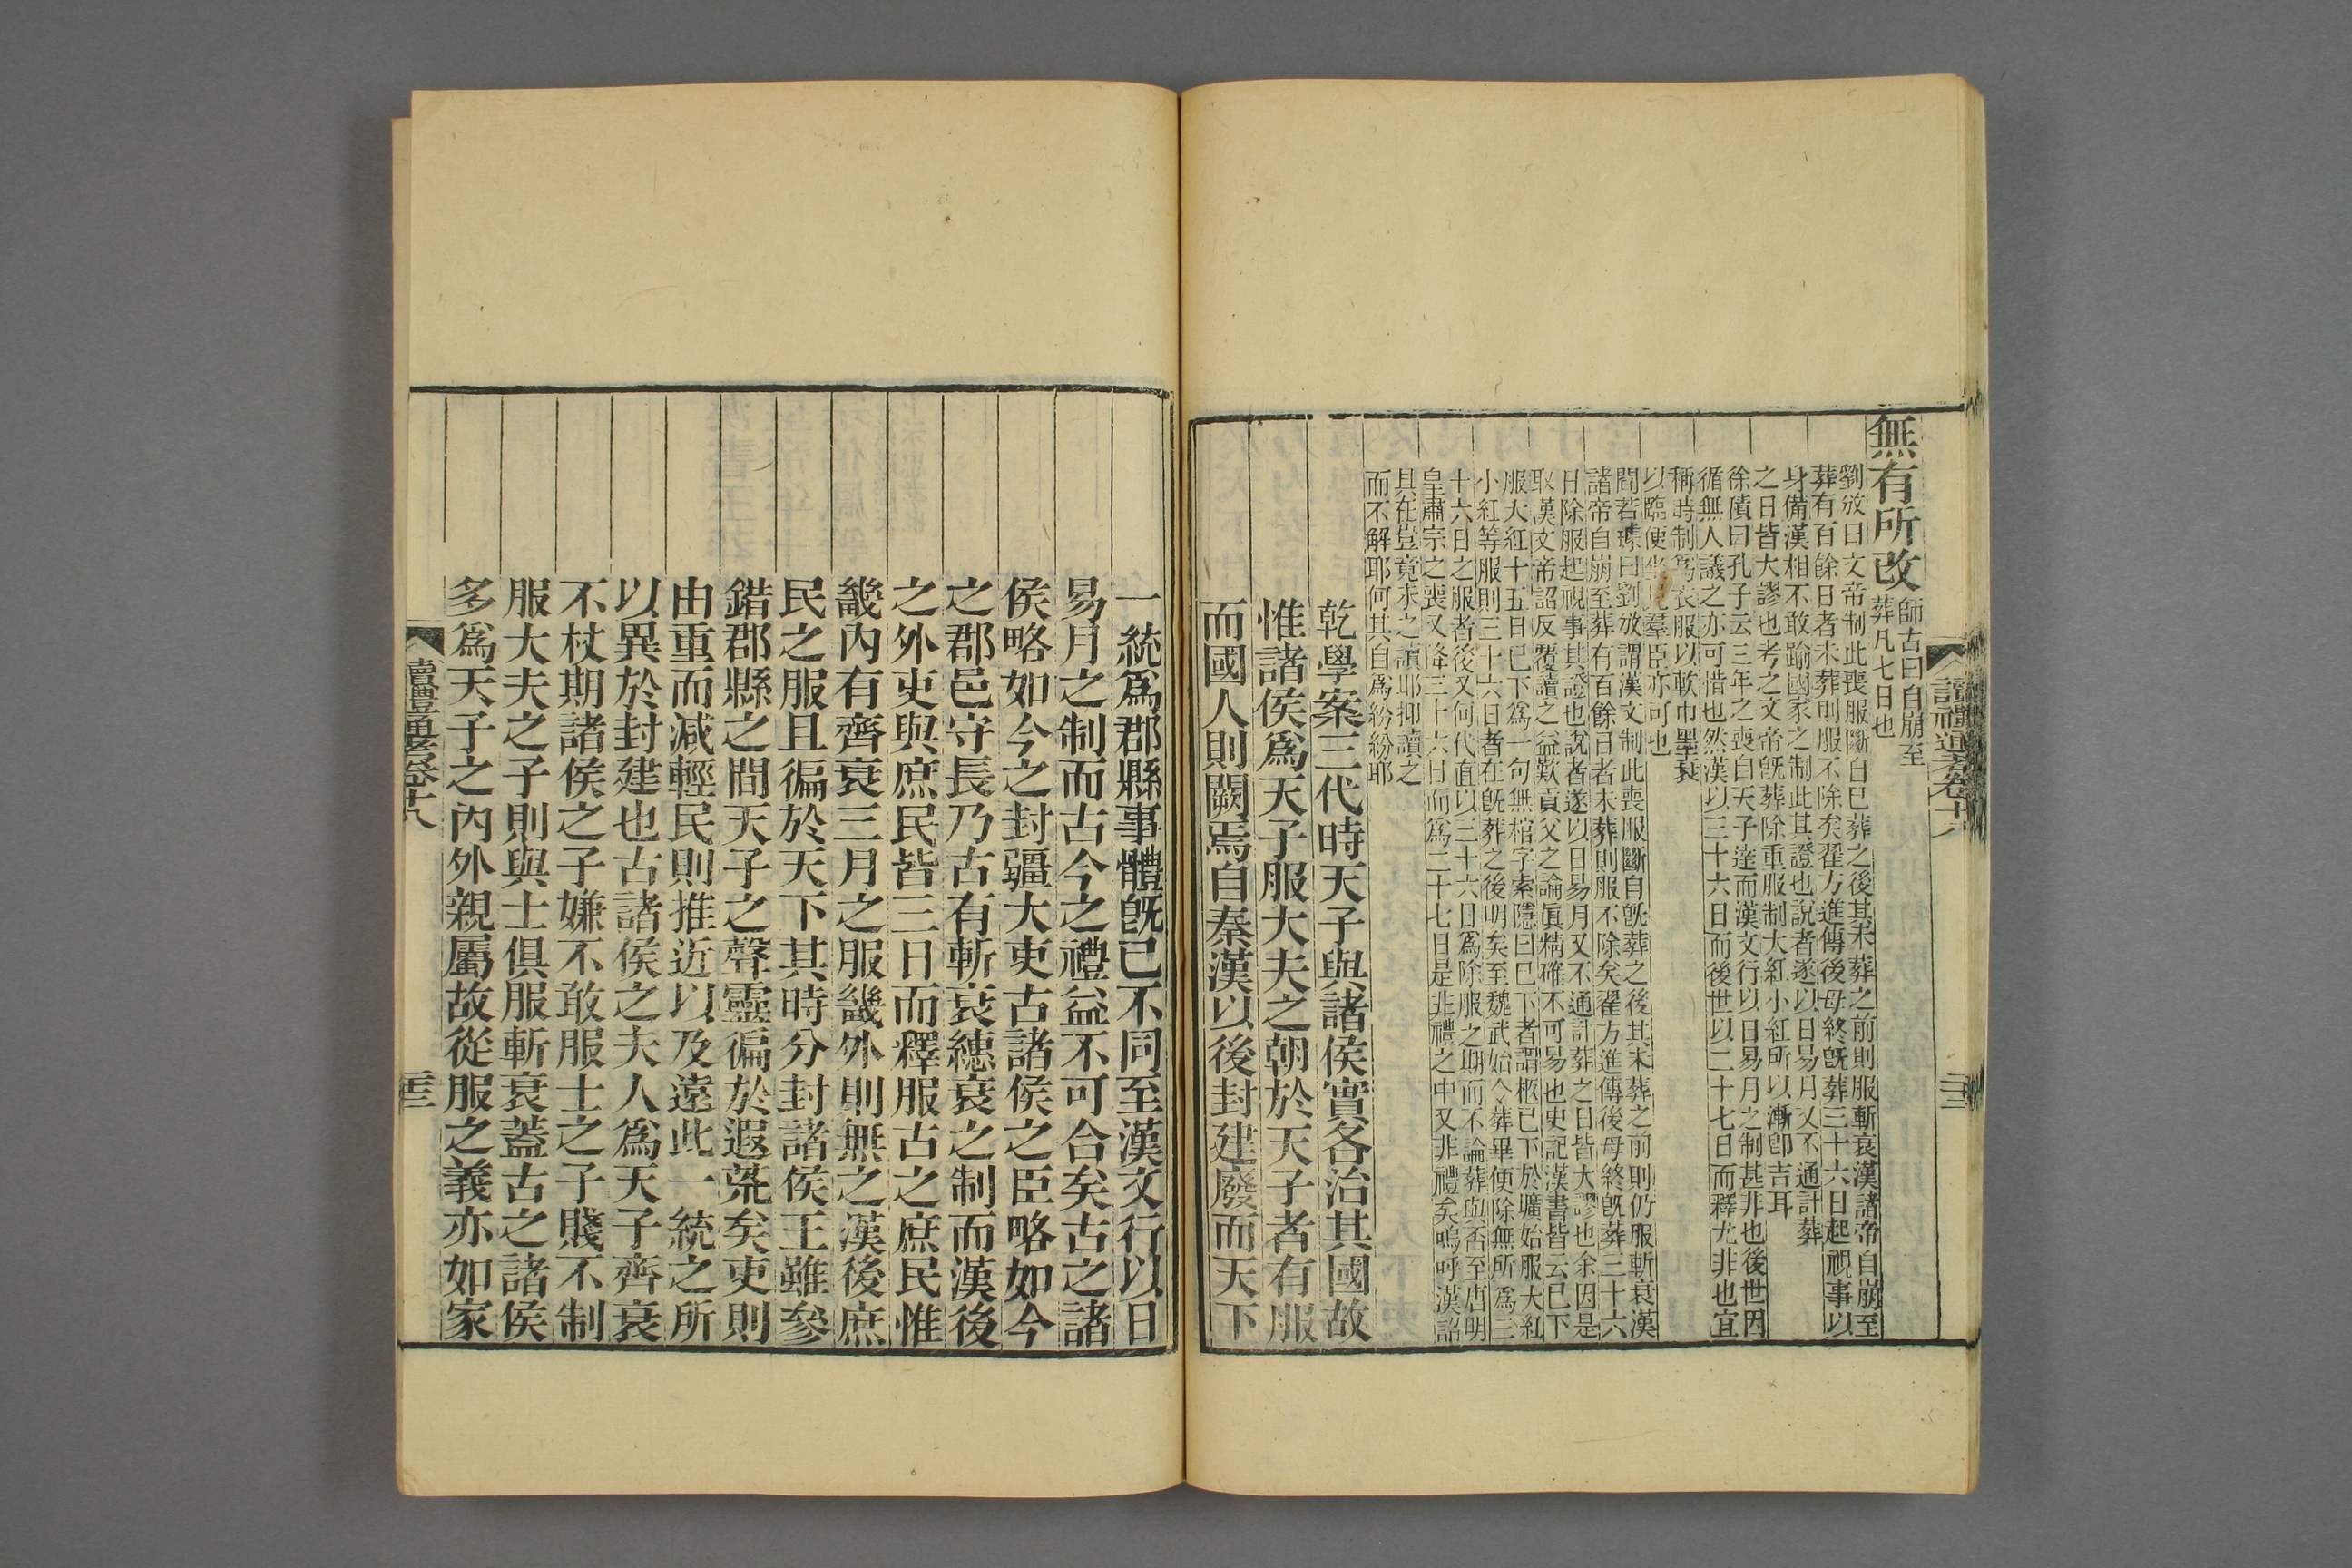 讀禮通考卷十八
二十二
無有所改
師古曰自崩至
葬凡七日也
劉攽曰文帝制此喪服斷自已葬之後其未葬之前則服斬衰漢諸帝自崩至
葬有百餘日者未葬則服不除矣翟方進傳後母終旣葬三十六日起視事以
身備漢相不敢踰國家之制此其證也說者遂以日易月又不通計葬
之日皆大謬也考之文帝旣葬除重服制大紅小紅所以漸卽吉耳
徐𧷤曰孔子云三年之喪自天子達而漢文行以日易月之制甚非也後世因
循無人議之亦可惜也然漢以三十六日而後世以二十七日而釋尤非也宜
稱時制爲衣服以軟巾墨衰
以臨便坐見羣臣亦可也
閻若璩曰劉攽謂漢文制此喪服斷自旣葬之後其未葬之前則仍服斬衰漢
諸帝自崩至葬有百餘日者未葬則服不除矣翟方進傳後母終旣葬三十六
日除服起視事其證也說者遂以日易月又不通計葬之日皆大謬也余因是
取漢文帝詔反覆讀之益歎貢父之論眞精確不可易也史記漢書皆云已下
服大紅十五日已下爲一句無棺字索隱曰已下者謂柩已下於壙始服大紅
小紅等服則三十六日者在旣葬之後明矣至魏武始令葬畢便除無所爲三
十六日之服者後又何代直以三十六日爲除服之期而不論葬與否至唐明
皇肅宗之喪又降三十六日而爲二十七日是非禮之中又非禮矣嗚呼漢詔
具在豈竟未之讀耶抑讀之
而不解耶何其自爲紛紛耶
乾學案三代時天子與諸侯實各治其國故
惟諸侯爲天子服大夫之朝於天子者有服
而國人則闕焉自秦漢以後封建廢而天下
一統爲郡縣事體旣已不同至漢文行以日
易月之制而古今之禮益不可合矣古之諸
侯略如今之封疆大吏古諸侯之臣略如今
之郡邑守長乃古有斬衰繐衰之制而漢後
之外吏與庶民皆三日而釋服古之庶民惟
畿內有齊衰三月之服畿外則無之漢後庶
民之服且徧於天下其時分封諸侯王雖參
錯郡縣之間天子之聲靈徧於遐荒矣吏則
由重而減輕民則推近以及遠此一統之所
以異於封建也古諸侯之夫人爲天子齊衰
不杖期諸侯之子嫌不敢服士之子賤不制
服大夫之子則與士俱服斬衰蓋古之諸侯
多爲天子之內外親屬故從服之義亦如家
讀禮通考卷十八
二十三